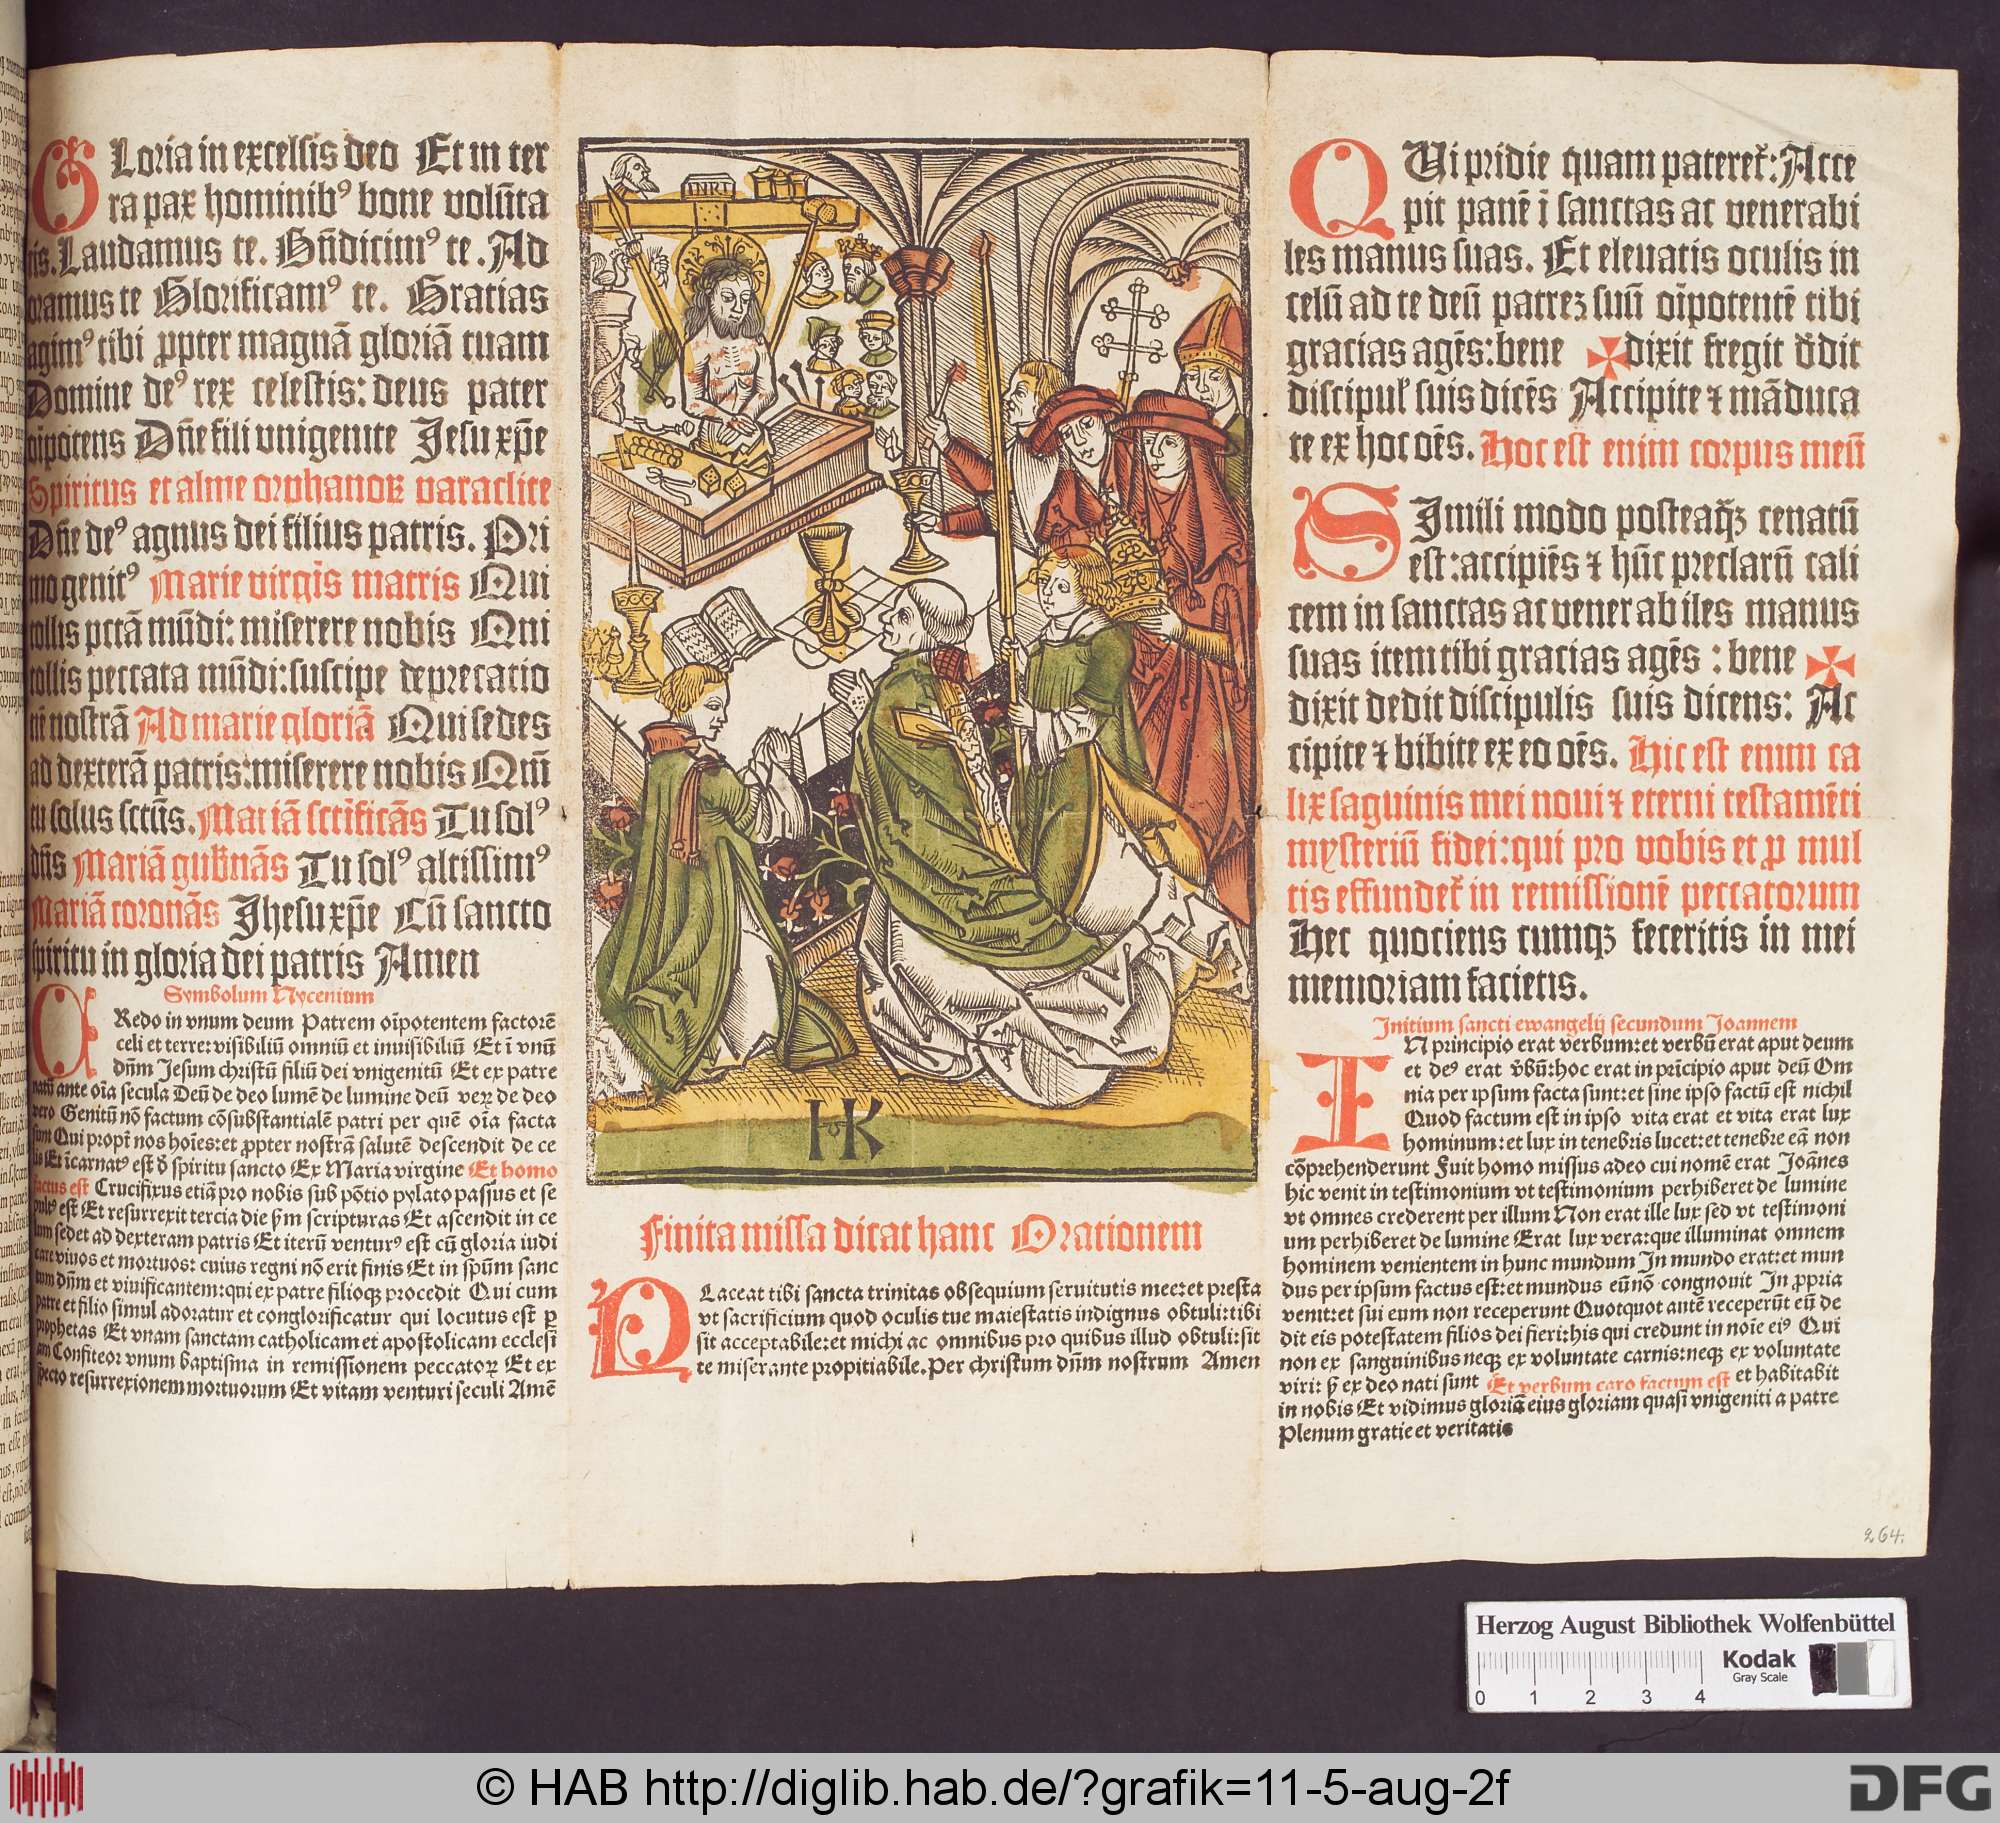 GLoria in excelsis deo Et in ter
ra pax hominibꝰ bone volūta
tis. Laudamus te. Bñdicimꝰ te. Ad
oramus te Glorificamꝰ te. Gratias
agimꝰ tibi ꝓpter magnā gloriā tuam
Domine deꝰ rex celestis: deus pater
oīpotens Dñe fili vnigenite Jesu xp̄e
Spiritus et alme orphanoꝝ paraclite
Dñe deꝰ agnus dei filius patris. Pri
mogenitꝰ Marie virgīs matris Qui
tollis pctā mūdi: miserere nobis Qui
tollis peccata mūdi: suscipe deprecatio
nē nostrā Ad marie gloriā Qui sedes
ad dexterā patris: miserere nobis Qm̄
tu solus sctūs. Mariā sctificās Tu solꝰ
dñs Mariā gubnās Tu solꝰ altissimꝰ
Mariā coronās Jhesu xp̄e Cū sancto
spiritu in gloria dei patris Amen
Symbolum Nycenium
CRedo in vnum deum Patrem oīpotentem factorē
celi et terre: visibiliū omniū et inuisibiliū Et ī vnū
dñm Jesum christū filiū dei vnigenitū Et ex patre
natū ante oīa secula Deū de deo lumē de lumine deū veꝝ de deo
vero Genitū nō factum cōsubstantialē patri per quē oīa facta
sunt Qui propt nos hoīes: et ꝓpter nostrā salutē descendit de ce
lis Et īcarnatꝰ est d̄ spiritu sancto Ex Maria virgine Et homo
factus est Crucifixus etiā pro nobis sub pōtio pylato passus et se
pultꝰ est Et resurrexit tercia die s̄m scripturas Et ascendit in ce
lum sedet ad dexteram patris Et iterū venturꝰ est cū gloria iudi
care viuos et mortuos: cuius regni nō erit finis Et in spūm sanc
tum dñm et viuificantem: qui ex patre filioqꝫ procedit Qui cum
patre et filio simul adoratur et conglorificatur qui locutus est ꝑ
prophetas Et vnam sanctam catholicam et apostolicam ecclesi
am Confiteor vnum baptisma in remissionem peccatoꝝ Et ex
pecto resurrexionem mortuorum Et vitam venturi seculi Amē
INRI
HK
Finita missa dicat hanc Orationem
PLaceat tibi sancta trinitas obsequium seruitutis mee: et presta
vt sacrificium quod oculis tue maiestatis indignus obtuli: tibi
sit acceptabile: et michi ac omnibus pro quibus illud obtuli: sit
te miserante propitiabile. Per christum dñm nostrum Amen
QUi pridie quam pateret̄: Acce
pit panē ī sanctas ac venerabi
les manus suas. Et eleuatis oculis in
celū ad te deū patreꝫ suū oīpotentē tibi
gracias agēs: bene ✠ dixit fregit d̄dit
discipul' suis dicēs Accipite ⁊ māduca
te ex hoc oēs. Hoc est enim corpus meū
SImili modo posteaq̄ꝫ cenatū
est: accipiēs ⁊ hūc preclarū cali
cem in sanctas ac venerabiles manus
suas item tibi gracias agēs: bene ✠
dixit dedit discipulis suis dicens: Ac
cipite ⁊ bibite ex eo oēs. Hic est enim ca
lix saguinis mei noui ⁊ eterni testamēti
mysteriū fidei: qui pro vobis et ꝓ mul
tis effundet̄ in remissionē peccatorum
Hec quociens cumqꝫ feceritis in mei
memoriam facietis.
Initium sancti ewangelij secundum Joannem
IN principio erat verbum: et verbū erat aput deum
et deꝰ erat v̄bū: hoc erat in prīcipio aput deū Om
nia per ipsum facta sunt: et sine ipso factū est nichil
Quod factum est in ipso vita erat et vita erat lux
hominum: et lux in tenebris lucet: et tenebre eā non
cōprehenderunt Fuit homo missus a deo cui nomē erat Joānes
hic venit in testimonium vt testimonium perhiberet de lumine
vt omnes crederent per illum Non erat ille lux sed vt testimoni
um perhiberet de lumine Erat lux vera: que illuminat omnem
hominem venientem in hunc mundum In mundo erat: et mun
dus per ipsum factus est: et mundus eū nō congnouit In ꝓpria
venit: et sui eum non receperunt Quotquot autē receperūt eū de
dit eis potestatem filios dei fieri: his qui credunt in noīe eiꝰ Qui
non ex sanguinibus neqꝫ ex voluntate carnis: neqꝫ ex voluntate
viri: s̄ ex deo nati sunt Et verbum caro factum est et habitabit
in nobis Et vidimus gloriā eius gloriam quasi vnigeniti a patre
Plenum gratie et veritatis
264.
Herzog August Bibliothek Wolfenbüttel
Kodak
Gray Scale
0 1 2 3 4
© HAB http://diglib.hab.de/?grafik=11-5-aug-2f
DFG